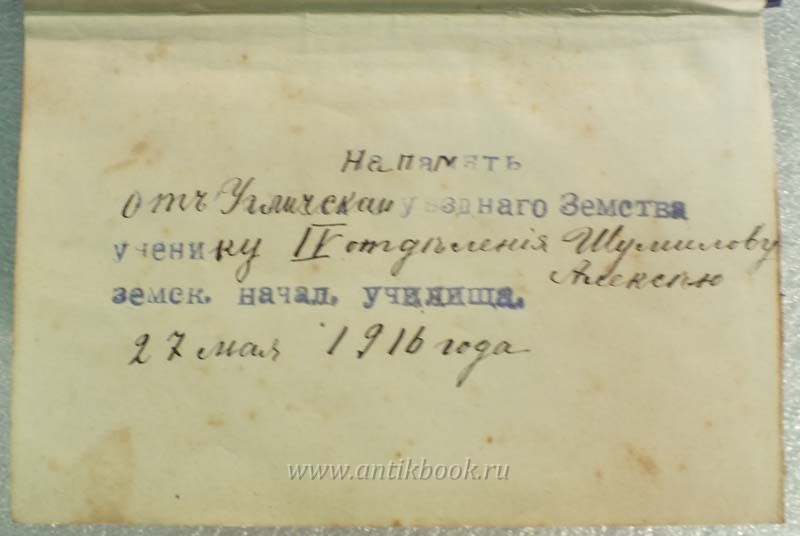 На память
отъ Угличскаго уѣзднаго Земства
ученику IV отдѣленія Шумилову
Алексѣю
земск. начал. училища.
27 мая 1916 года
www.antikbook.ru